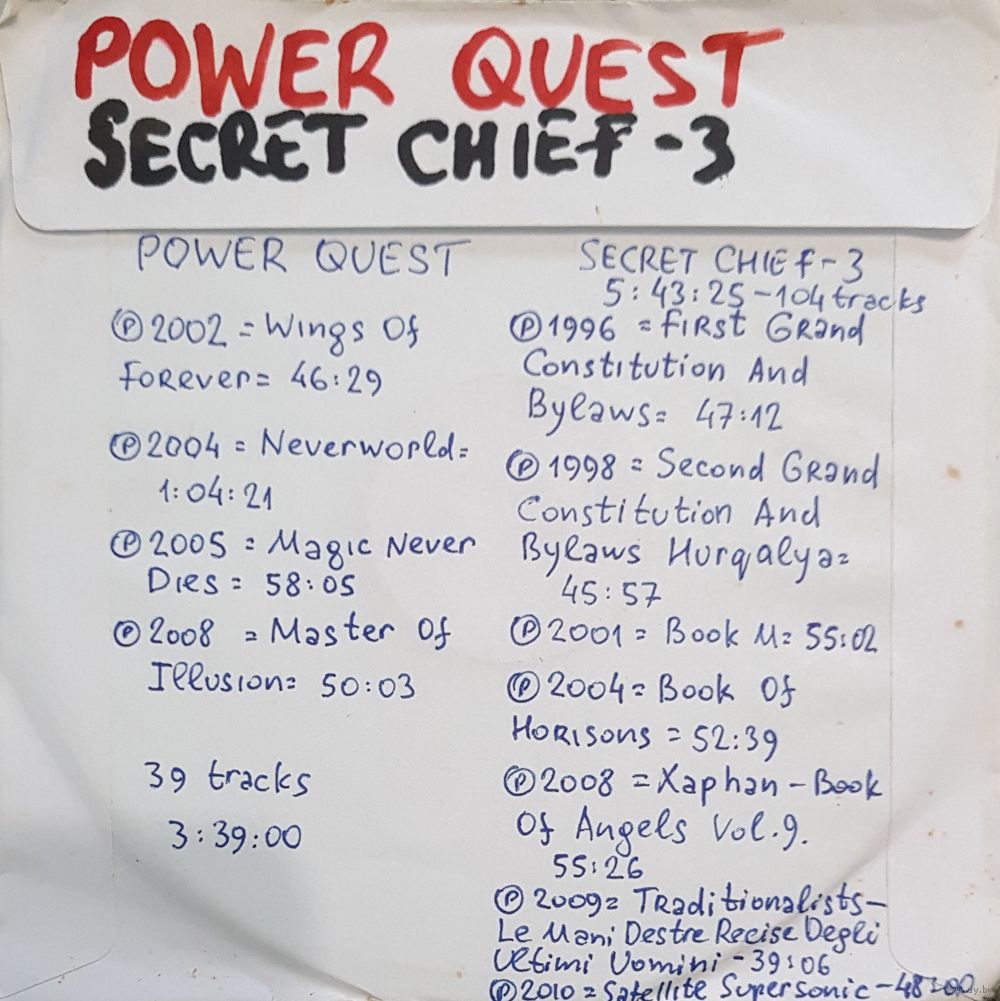 POWER QUEST
SECRET CHIEF-3
POWER QUEST
Ⓟ2002 = Wings Of
Forever= 46:29
Ⓟ2004 = Neverworld=
1:04:21
Ⓟ2005 = Magic Never
Dies = 58:05
Ⓟ2008 = Master Of
Illusion= 50:03
39 tracks
3:39:00
SECRET CHIEF-3
5:43:25-104tracks
Ⓟ1996 = First Grand
Constitution And
Bylaws= 47:12
Ⓟ1998 = Second Grand
Constitution And
Bylaws Hurqalya=
45:57
Ⓟ2001 = Book M= 55:02
Ⓟ2004= Book Of
Horisons = 52:39
Ⓟ2008 = Xaphan - Book
Of Angels Vol.9.
55:26
Ⓟ2009= Traditionalists-
Le Mani Destre Recise Degli
Ultimi Uomini - 39:06
Ⓟ2010 = Satellite Supersonic - 48:00